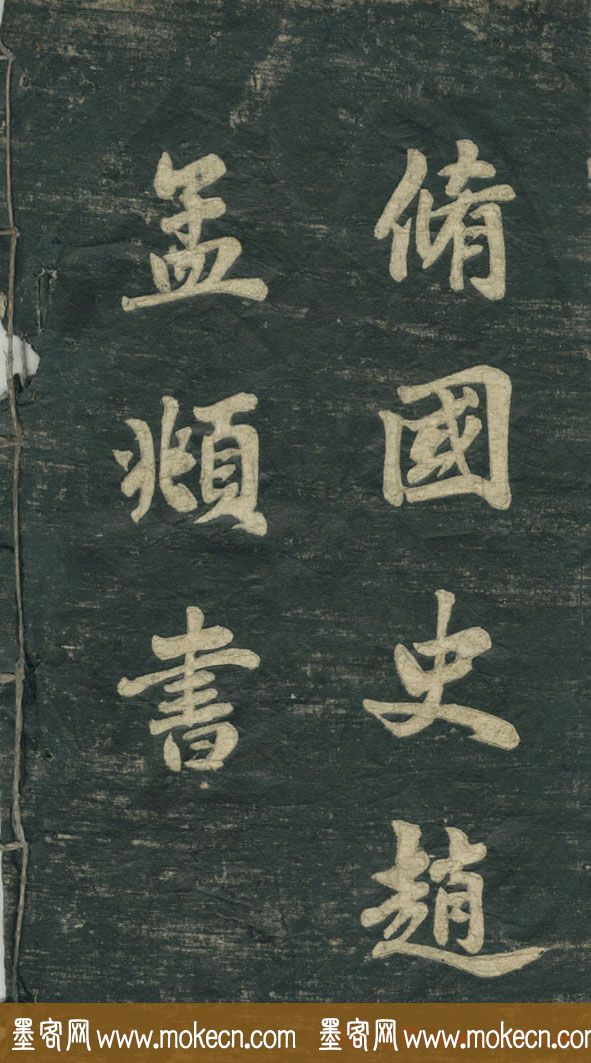 脩國史趙
孟頫書
墨客网 www.mokecn.com 墨客网 www.mokecn.com